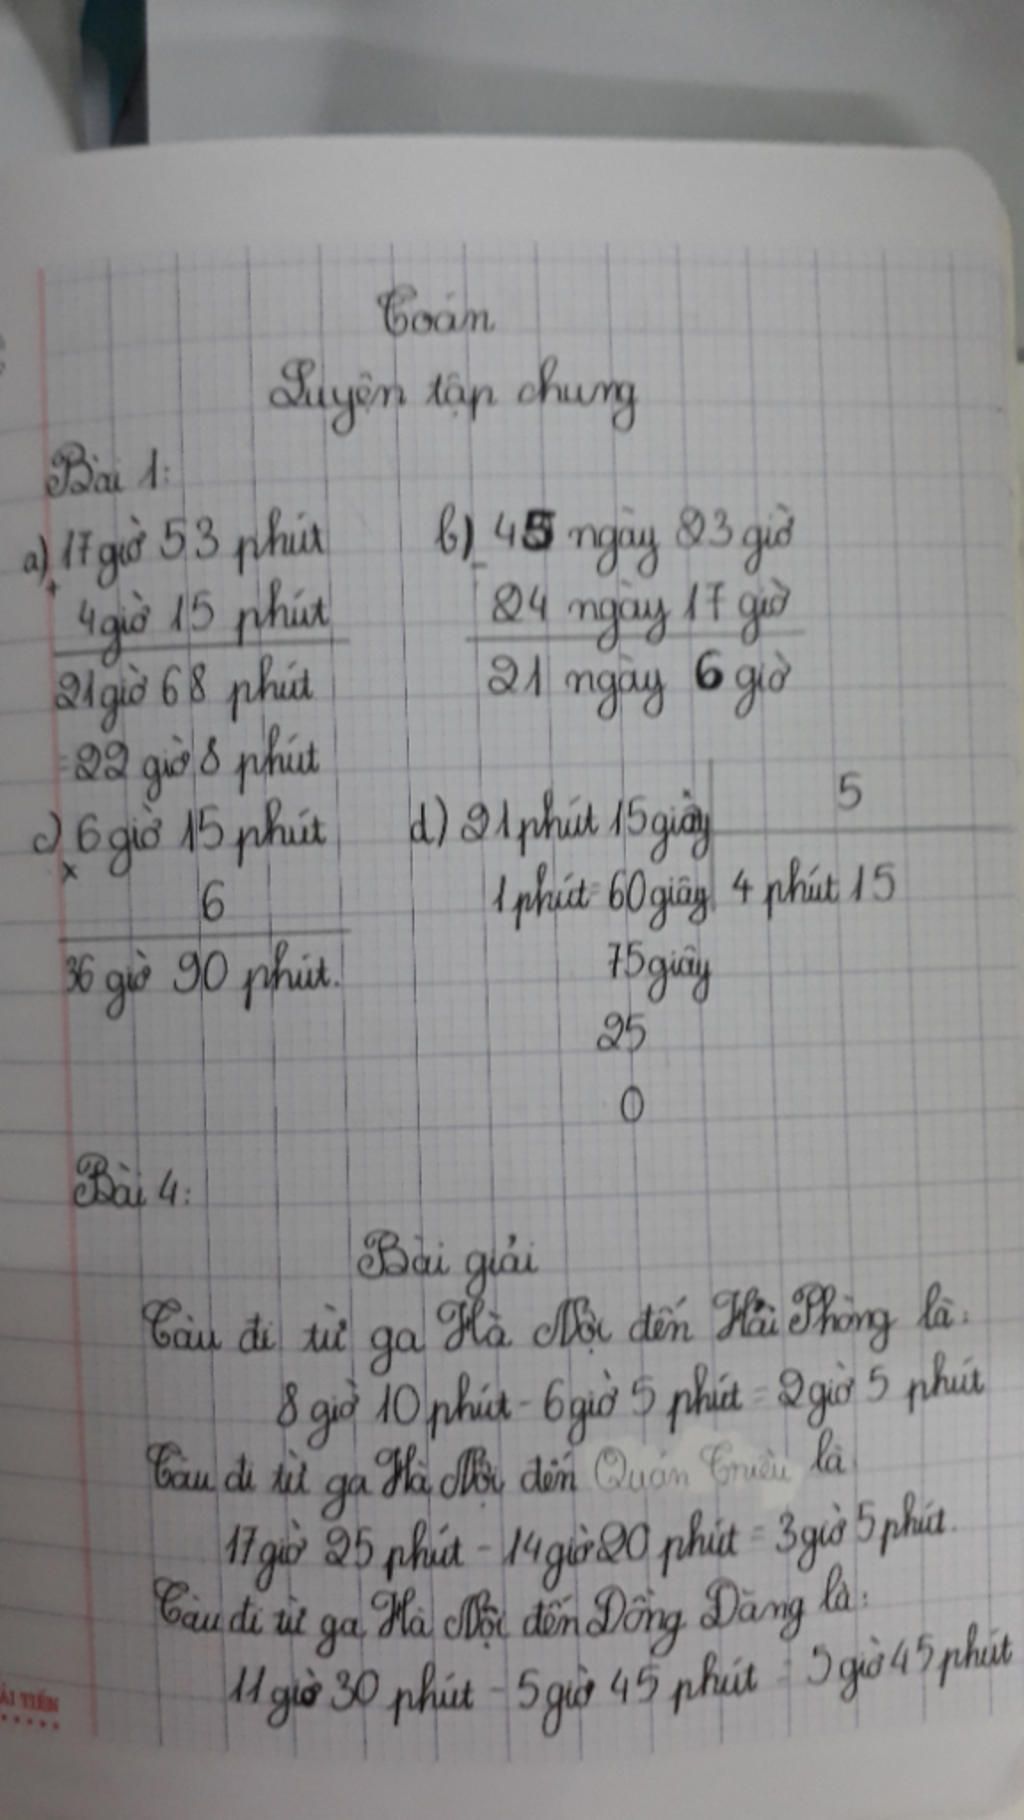 Toán
Luyện tập chung
Bài 1:
a) 17 giờ 53 phút
+
4 giờ 15 phút
21 giờ 68 phút
= 22 giờ 8 phút
b) 45 ngày 23 giờ
-
24 ngày 17 giờ
21 ngày 6 giờ
c) 6 giờ 15 phút
x
6
36 giờ 90 phút.
d) 21 phút 15 giây 5
1 phút = 60 giây 4 phút 15
75 giây
25
0
Bài 4:
Bài giải
Tàu đi từ ga Hà Nội đến Hải Phòng là:
8 giờ 10 phút - 6 giờ 5 phút = 2 giờ 5 phút
Tàu đi từ ga Hà Nội đến Quán Triều là
17 giờ 25 phút - 14 giờ 20 phút = 3 giờ 5 phút.
Tàu đi từ ga Hà Nội đến Đồng Đăng là:
11 giờ 30 phút - 5 giờ 45 phút = 5 giờ 45 phút
ẢI TIẾN